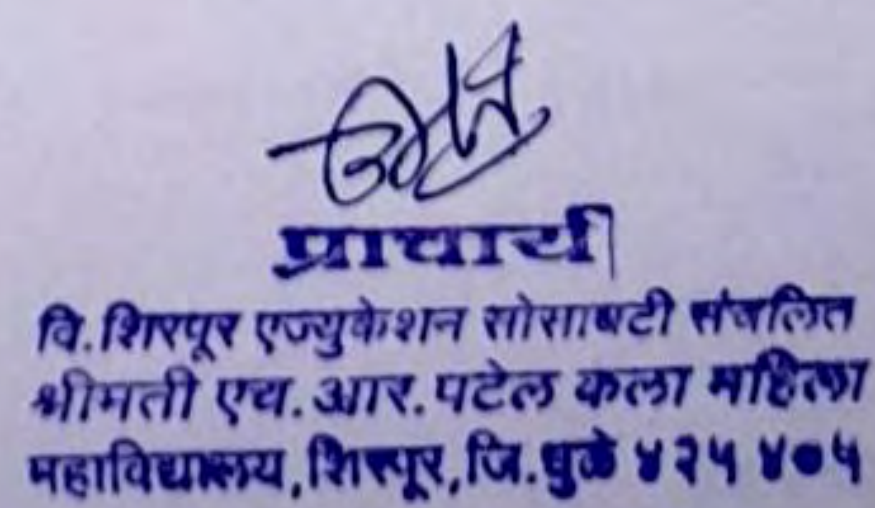 प्राचार्य
वि.शिरपूर एज्युकेशन सोसायटी संचलित
श्रीमती एच.आर.पटेल कला महिला
महाविद्यालय,शिरपूर,जि.धुळे ४२५ ४०५